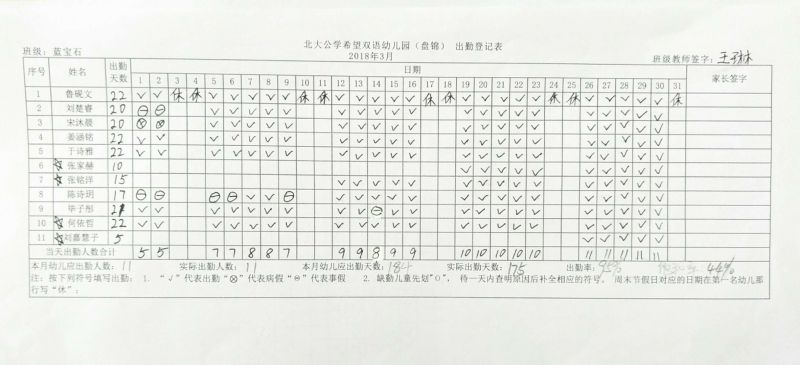 北大公学希望双语幼儿园（盘锦） 出勤登记表
班级：蓝宝石 2018年3月 班级教师签字：
序号 姓名 出勤天数 日期 家长签字
1 2 3 4 5 6 7 8 9 10 11 12 13 14 15 16 17 18 19 20 21 22 23 24 25 26 27 28 29 30 31
1 鲁砚文 22 ✓ ✓ 休 休 ✓ ✓ ✓ ✓ ✓ 休 休 ✓ ✓ ✓ ✓ ✓ 休 休 ✓ ✓ ✓ ✓ ✓ 休 休 ✓ ✓ ✓ ✓ ✓ 休
2 刘楚睿 20 ⊖ ⊖ ✓ ✓ ✓ ✓ ✓ ✓ ✓ ✓ ✓ ✓ ✓ ✓ ✓ ✓ ✓ ✓ ✓ ✓ ✓ ✓
3 宋沐晨 20 ⊗ ⊗ ✓ ✓ ✓ ✓ ✓ ✓ ✓ ✓ ✓ ✓ ✓ ✓ ✓ ✓ ✓ ✓ ✓ ✓ ✓ ✓
4 姜涵铭 22 ✓ ✓ ✓ ✓ ✓ ✓ ✓ ✓ ✓ ✓ ✓ ✓ ✓ ✓ ✓ ✓ ✓ ✓ ✓ ✓ ✓ ✓
5 于诗雅 22 ✓ ✓ ✓ ✓ ✓ ✓ ✓ ✓ ✓ ✓ ✓ ✓ ✓ ✓ ✓ ✓ ✓ ✓ ✓ ✓ ✓ ✓
6 ☆张家赫 10 ✓ ✓ ✓ ✓ ✓ ✓ ✓ ✓ ✓ ✓
7 ☆张铭洋 15 ✓ ✓ ✓ ✓ ✓ ✓ ✓ ✓ ✓ ✓ ✓ ✓ ✓ ✓ ✓
8 陈诗玥 17 ⊖ ⊖ ⊖ ⊖ ✓ ✓ ⊖ ✓ ✓ ✓ ✓ ✓ ✓ ✓ ✓ ✓ ✓ ✓ ✓ ✓ ✓ ✓
9 毕子彤 21 ✓ ✓ ✓ ✓ ✓ ✓ ✓ ✓ ✓ ⊖ ✓ ✓ ✓ ✓ ✓ ✓ ✓ ✓ ✓ ✓ ✓ ✓
10 ☆何依哲 22 ✓ ✓ ✓ ✓ ✓ ✓ ✓ ✓ ✓ ✓ ✓ ✓ ✓ ✓ ✓ ✓ ✓ ✓ ✓ ✓ ✓ ✓
11 ☆刘嘉慧子 5 ✓ ✓ ✓ ✓ ✓
当天出勤人数合计 5 5 7 7 8 8 7 9 9 8 9 9 10 10 10 10 10 11 11 11 11 11
本月幼儿应出勤人数：11 实际出勤人数：11 本月幼儿应出勤天数：184 实际出勤天数：175 出勤率：95% 44%
注：按下列符号填写出勤： 1. “✓”代表出勤“⊗”代表病假“⊖”代表事假 2. 缺勤儿童先划"O"， 待一天内查明原因后补全相应的符号。 周末节假日对应的日期在第一名幼儿那
行写“休”；